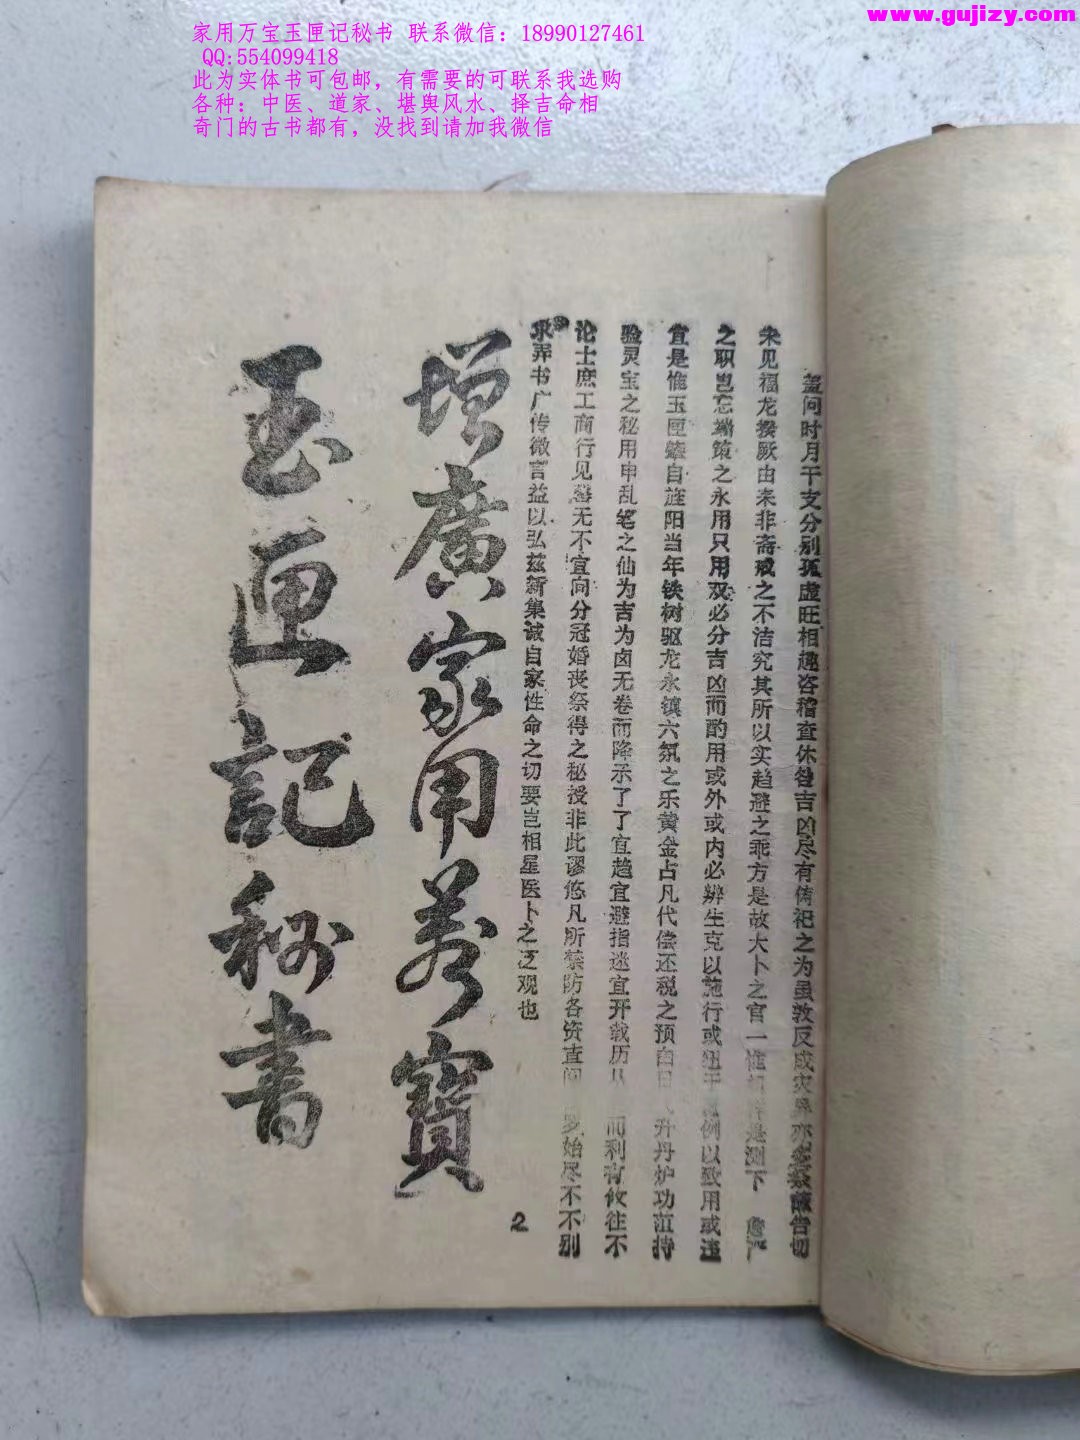 www.gujizy.com
家用万宝玉匣记秘书 联系微信：18990127461
QQ:554099418
此为实体书可包邮，有需要的可联系我选购
各种：中医、道家、堪舆风水、择吉命相
奇门的古书都有，没找到请加我微信
盖问时月干支分别孤虚旺相趣咨稽查休咎吉凶尽有侑祀之为虽敦反成灾
告切
未见福龙揆厥由来非斋戒之不洁究其所以实趋避之乖方是故大卜之官一惟
是测下
之职岂忘端策之永用只用双必分吉凶而酌用或外或内必辨生克以施行或
例以致用或违
宜是惟玉匣肇自旌阳当年铁树驱龙永镇六氛之乐黄金占凡代偿还税之预白日
升丹炉功
持
验灵宝之秘用申乱笔之仙为吉为卤无卷而降示了了宜趋宜避指迷宜开载历
而利有攸往不
论士庶工商行见
无不宜向分冠婚丧祭得之秘授非此谬悠凡所禁防各资查
始尽不不别
求弄书广传微言益以弘兹新集诚自家性命之切要岂相星医卜之泛观也
2
增廣家用萬寶
玉匣記秘書